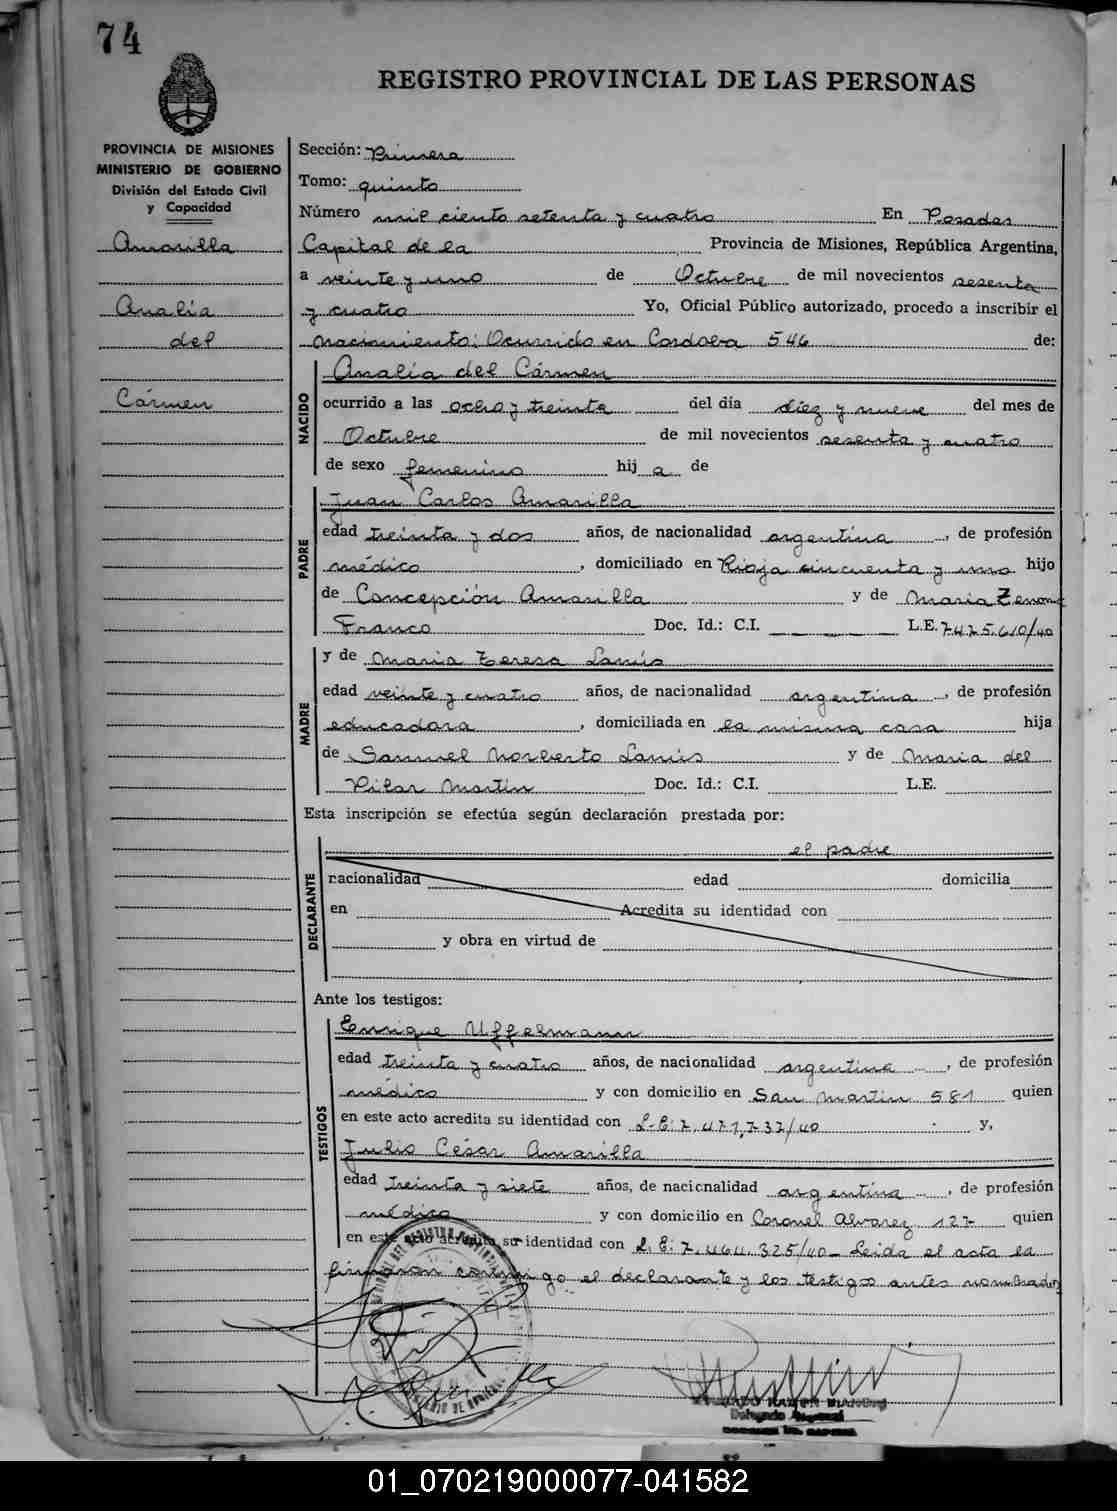 74
REGISTRO PROVINCIAL DE LAS PERSONAS
PROVINCIA DE MISIONES
MINISTERIO DE GOBIERNO
División del Estado Civil
y Capacidad
Amarilla
Analía
del
Cármen
Sección: Primera
Tomo: quinto
Número mil ciento setenta y cuatro En Posadas
Capital de la Provincia de Misiones, República Argentina,
a veinte y uno de Octubre de mil novecientos sesenta
y cuatro Yo, Oficial Público autorizado, procedo a inscribir el
nacimiento: Ocurrido en Cordoba 546 de:
NACIDO
Analía del Cármen
ocurrido a las ocho y treinta del día diez y nueve del mes de
Octubre de mil novecientos sesenta y cuatro
de sexo femenino hij a de
PADRE
Juan Carlos Amarilla
edad treinta y dos años, de nacionalidad argentina, de profesión
médico, domiciliado en Rioja cincuenta y uno hijo
de Concepción Amarilla y de Maria Zenona
Franco Doc. Id.: C.I. L.E. 7.475.610/40
MADRE
y de Maria Teresa Lanús
edad veinte y cuatro años, de nacionalidad argentina, de profesión
educadora, domiciliada en la misma casa hija
de Samuel Norberto Lanús y de Maria del
Pilar Martín Doc. Id.: C.I. L.E.
Esta inscripción se efectúa según declaración prestada por:
DECLARANTE
el padre
nacionalidad edad domicilia
en Acredita su identidad con
y obra en virtud de
Ante los testigos:
TESTIGOS
Enrique Uffelmann
edad treinta y cuatro años, de nacionalidad argentina, de profesión
médico y con domicilio en San Martin 581 quien
en este acto acredita su identidad con L.E: 7.471,737/40 y,
Julio César Amarilla
edad treinta y siete años, de nacionalidad argentina, de profesión
médico y con domicilio en Coronel Alvarez 127 quien
en este acto acredita su identidad con L.E: 7.464.325/40 - Leida el acta la
firmaron conmigo el declarante y los testigos antes nombrados
01_070219000077-041582